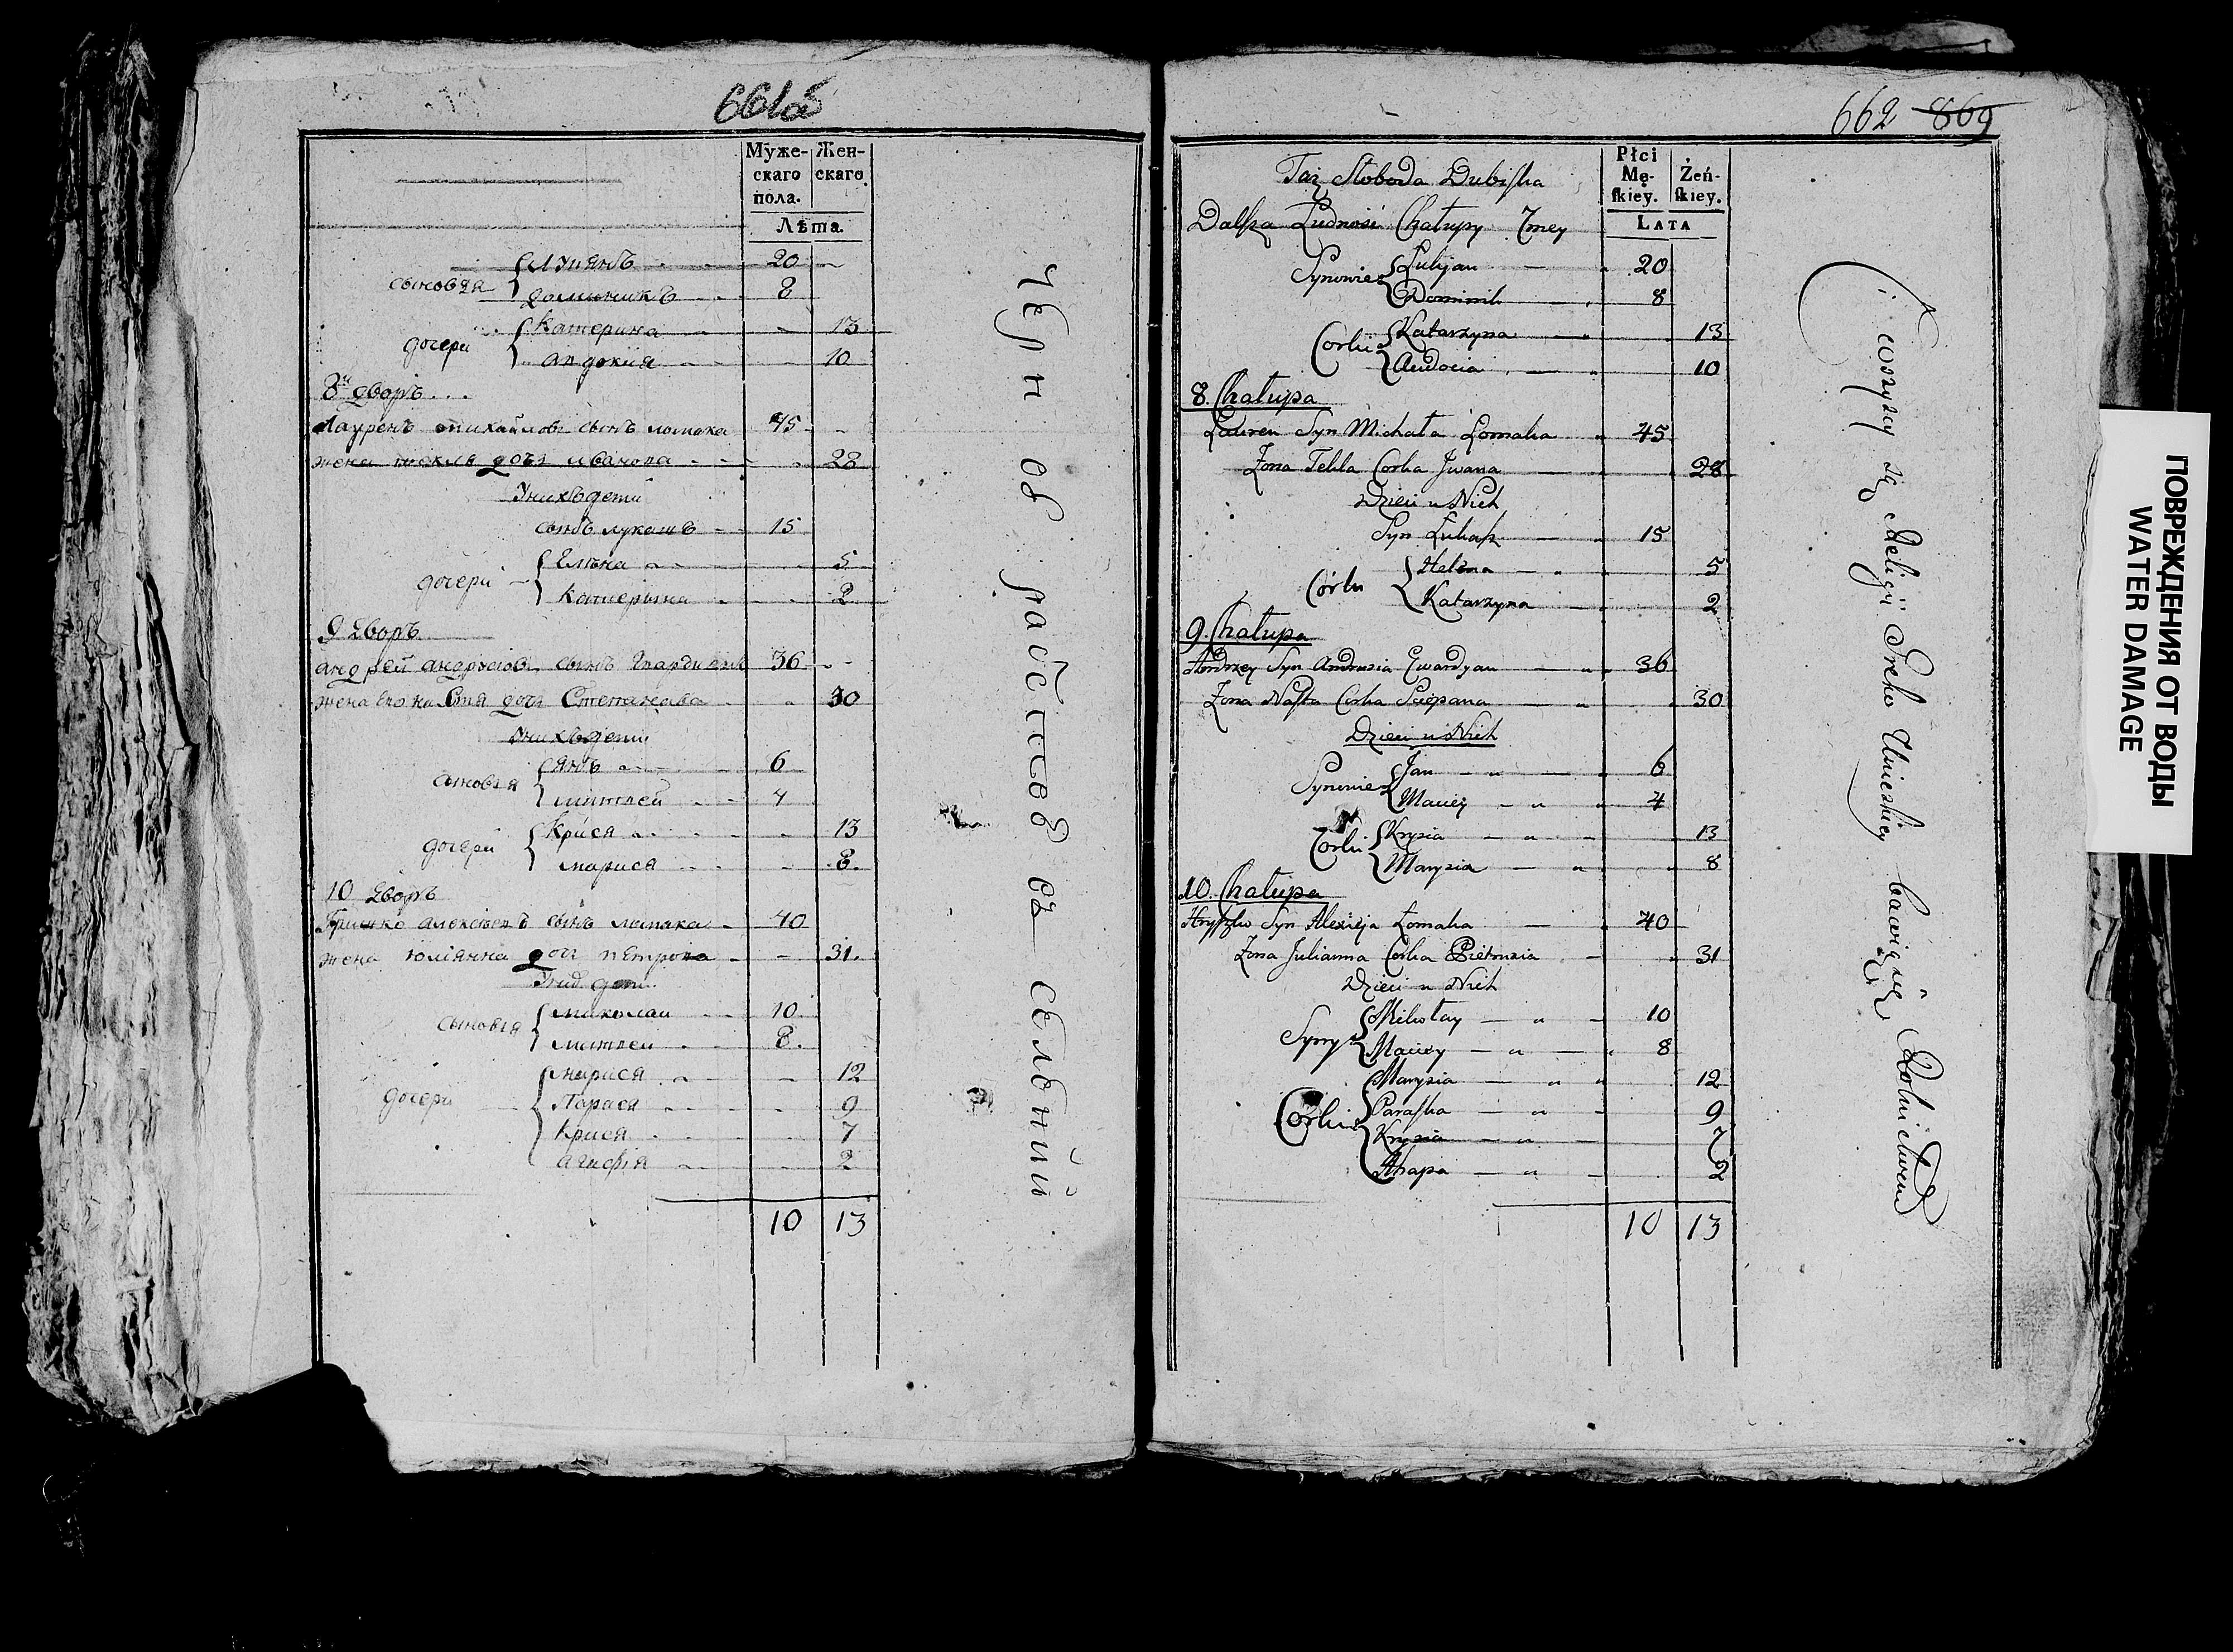 661об
Муже- Жен-
скаго скаго
пола.
Лѣта.
сыновья
Лукянъ 20
доминикъ 8
дочери
Катерина 13
андокия 10
8й дворъ
Лауренъ михайловъ сынъ ломака 45
жена текля дочь иванова 28
У них дети
сынъ лукашъ 15
дочери
Елѣна 5
Катерына 2
9 дворъ
андрей андрусювъ сынъ 36
жена его настя дочь Степанова 30
У них дети
сыновья
янъ 6
матвей 4
дочери
Крися 13
марися 8
10 дворъ
Гришко алексѣевъ сынъ ломака 40
жена юлиянна дочь петрова 31
У них дети
сыновья
миколаи 10
матвеи 8
дочери
марися 12
Парася 9
Крися 7
агафия 2
10 13
662 869
Taż Słoboda Dubiska
Dalsza Ludność Chałupy 7mey
Płci
Mę- Żeń-
skiey. skiey.
LATA
Synowie
Lukjan 20
Dominik 8
Corki
Katarzyna 13
Audocia 10
8. Chałupa
Lauren Syn Michała Łomaka 45
Zona Tekla Corka Jwana 28
Dzieci u Nich
Syn Łukasz 15
Córki
Helena 5
Katarzyna 2
9. Chałupa
Andrzey Syn Andrusia Gwardyan 36
Zona Nasta Corka Sciepana 30
Dzieci u Nich
Synowie
Jan 6
Maciey 4
Corki
Krysia 13
Marysia 8
10. Chałupa
Hryszko Syn Alexieja Łomaka 40
Zona Julianna Corka Pietrusia 31
Dzieci u Nich
Syny
Mikołay 10
Maciey 8
Corki
Marysia 12
Paraska 9
Krysia 7
Ahapa 2
10 13
i wszyscy są Religii Greko Unickiey bawią się Rolnictwem
ПОВРЕЖДЕНИЯ ОТ ВОДЫ
WATER DAMAGE